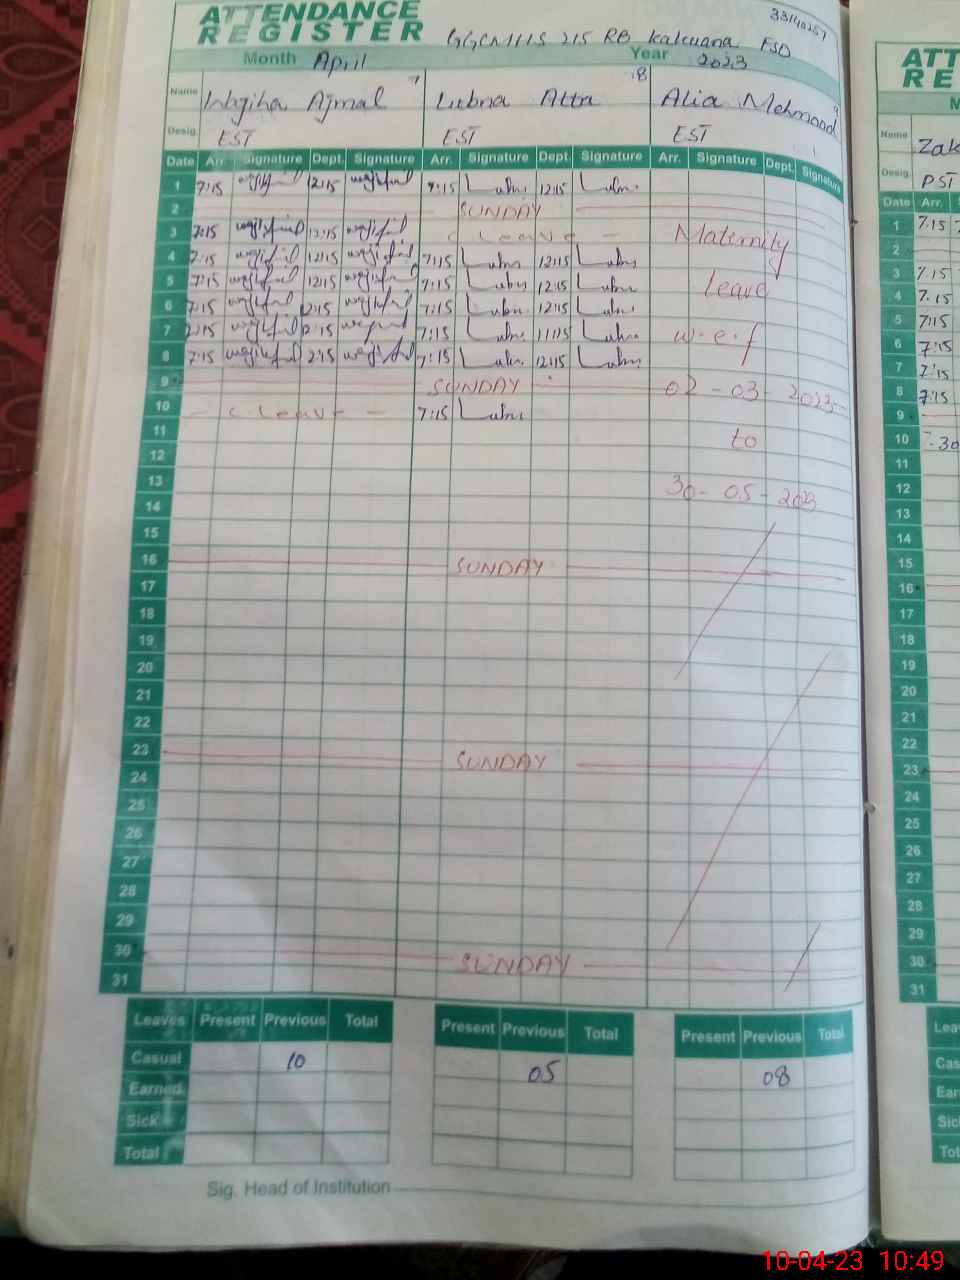 ATTENDANCE
REGISTER GGCMHS 215 RB Kakuana FSD
Month April Year 2023
Name Wajiha Ajmal 7 Lubna Atta 8 Alia Mehmood 9
Desig. EST EST EST
Date Arr. Signature Dept. Signature Arr. Signature Dept. Signature Arr. Signature Dept. Signature
1 7:15 12:15 7:15 Lubna 12:15 Lubna
2 SUNDAY
3 7:15 12:15 C Leave Maternity
4 7:15 12:15 7:15 Lubna 12:15 Lubna
5 7:15 12:15 7:15 Lubna 12:15 Lubna leave
6 7:15 12:15 7:15 Lubna 12:15 Lubna
7 7:15 12:15 7:15 Lubna 11:15 Lubna w.e.f
8 7:15 12:15 7:15 Lubna 12:15 Lubna
9 SUNDAY 02-03-2023
10 C Leave 7:15 Lubna
11 to
12
13 30-05-2023
14
15
16 SUNDAY
17
18
19
20
21
22
23 SUNDAY
24
25
26
27
28
29
30 SUNDAY
31
Leaves Present Previous Total Present Previous Total Present Previous Total
Casual 10 05 08
Earned
Sick
Total
Sig. Head of Institution
ATT
RE
Name Zak
Desig. PST
Date Arr.
1 7.15
2
3 7.15
4 7.15
5 7:15
6 7:15
7 7:15
8 7:15
9
10 7.30
11
12
13
14
15
16
17
18
19
20
21
22
23
24
25
26
27
28
29
30
31
Lea
Cas
Ear
Sic
Tot
10-04-23 10:49